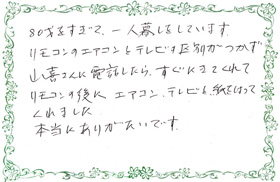 80才をすぎて、一人暮しをしています。
リモコンのエアコンとテレビの区別がつかず
山喜さんに電話したら、すぐにきてくれて
リモコンの後に エアコン、テレビと 紙をはって
くれました
本当にありがたいです。